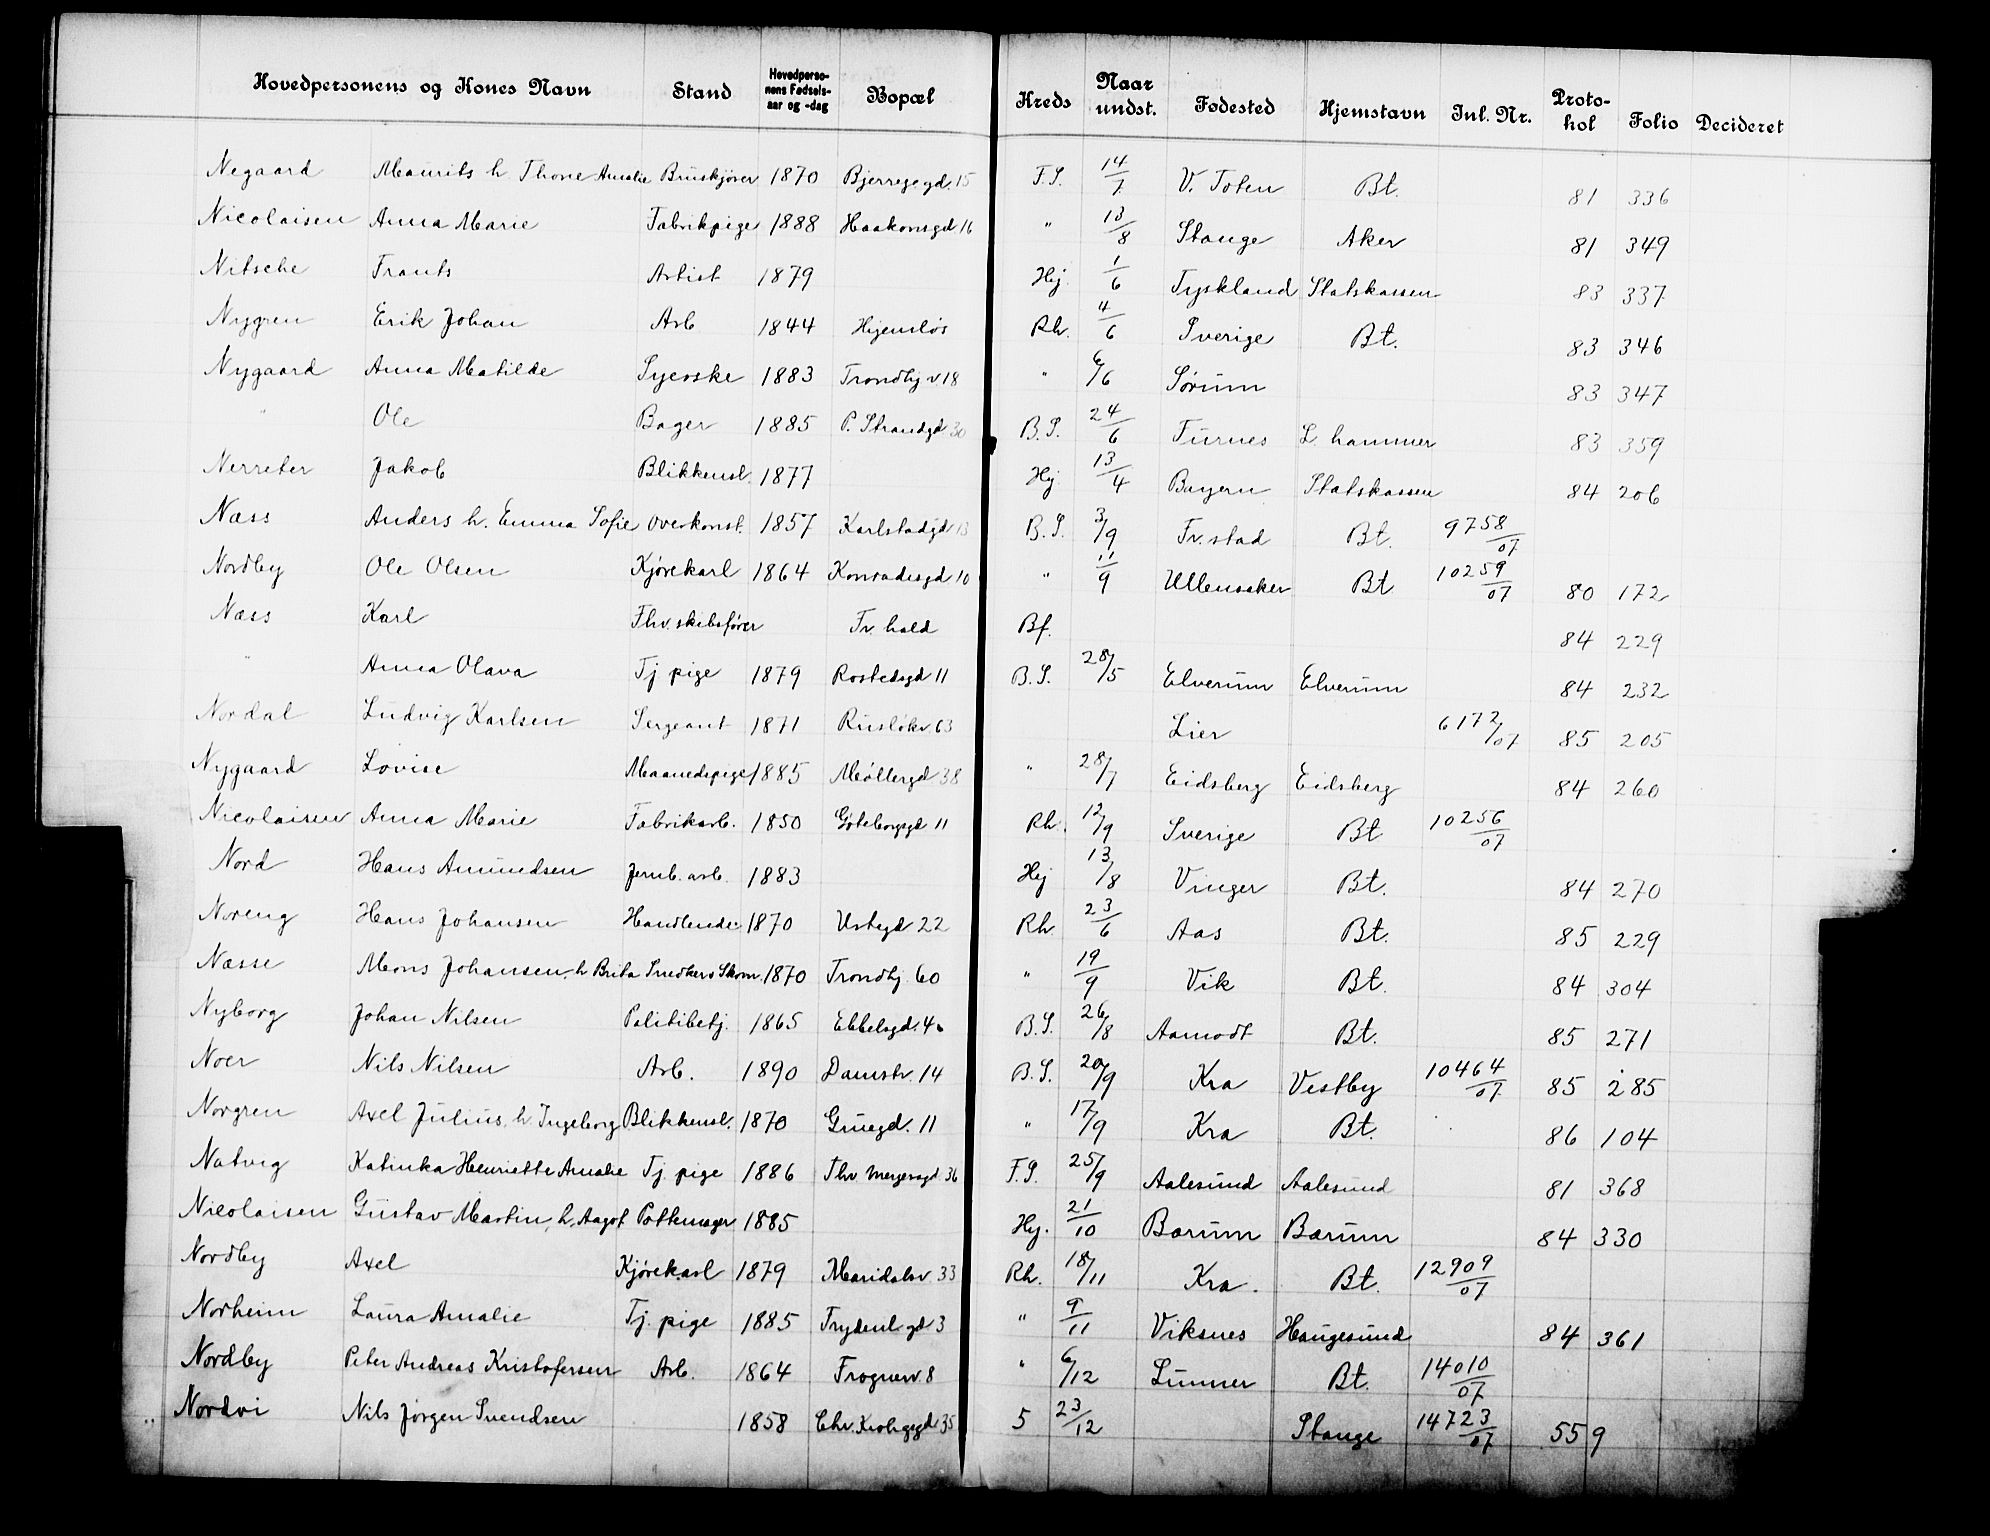 Hovedpersonens og Kones Navn Stand Hovedperso-nens Fødsels-aar og -dag Bopæl Kreds Naar undst. Fødested Hjemstavn Inl. Nr. Proto-kol Folio Decideret
Negaard Maurits h Thone Amalie Bruskjører 1870 Bjerregegd. 15 F.S. 14/7 V. Toten Bt. 81 336
Nicolaisen Anna Marie Fabrikpige 1888 Haakonsgd 16 " 13/8 Stange Aker 81 349
Nitsche Frants Artist 1879 Hj 1/6 Tyskland Statskassen 83 337
Nygren Erik Johan Arb 1844 Hjemløs Rh. 4/6 Sverige Bt. 83 346
Nygaard Anna Matilde Syerske 1883 Trondhj v 18 " 6/6 Sørum 83 347
" Ole Bager 1885 P. Strandgd 30 B.S. 24/6 Furnes L. hammer 83 359
Nerreter Jakob Blikkensl. 1877 Hj 13/4 Bayern Statskassen 84 206
Næss Anders h. Emma Sofie Overkonst. 1857 Karlstadgd 13 B.S. 3/9 Fr. stad Bt. 9758/07
Nordby Ole Olsen Kjørekarl 1864 Konradisgd 10 " 11/9 Ullensaker Bt 10259/07 80 172
Næss Karl Fhv. skibsfører Fr. hald Bf. 84 229
" Anna Olava Tj pige 1879 Rostedsgd 11 B.S. 28/5 Elverum Elverum 84 232
Nordal Ludvig Karlsen Sergeant 1871 Rusløkv. 63 Lier 6172/07 85 205
Nygaard Lovise Maanedspige 1885 Møllergd 38 " 28/7 Eidsberg Eidsberg 84 260
Nicolaisen Anna Marie Fabrikarb. 1850 Gøteborggd 11 Rh 12/9 Sverige Bt 10256/07
Nord Hans Amundsen Jernb. arb. 1883 Hj 13/8 Vinger Bt. 84 270
Noreng Hans Johansen Handlende 1870 Urtegd 22 Rh 23/6 Aas Bt. 85 229
Næsse Mons Johansen, h Brita Snedker o Skom. 1870 Trondhj. 60 " 19/9 Vik Bt. 84 304
Nyborg Johan Nilsen Politibetj. 1865 Ebbelsgd. 4 B.S. 26/8 Aamodt Bt. 85 271
Noer Nils Nilsen Arb. 1890 Damstr. 14 B.S. 20/9 Kra Vestby 10464/07 85 285
Norgren Axel Julius, h. Ingeborg Blikkensl. 1870 Gruegd. 11 " 17/9 Kra Bt. 86 104
Natvig Katinka Henriette Amalie Tj. pige 1886 Thv. Meyersgd. 36 F.S. 25/9 Aalesund Aalesund 81 368
Nicolaisen Gustav Martin, h. Aagot Pottemager 1885 Hj. 21/10 Bærum Bærum 84 330
Nordby Axel Kjørekarl 1879 Maridalsv. 33 Rh. 18/11 Kra. Bt. 12909/07
Norheim Laura Amalie Tj. pige 1885 Frydenl. gd 3 " 9/11 Viksnes Haugesund 84 361
Nordby Peter Andreas Kristofersen Arb. 1864 Frognerv. 8 " 6/12 Lunner Bt. 14010/07
Nordvi Nils Jørgen Svendsen 1858 Chr. Krohgsgd 35 5 23/12 Stange 14723/07 55 9